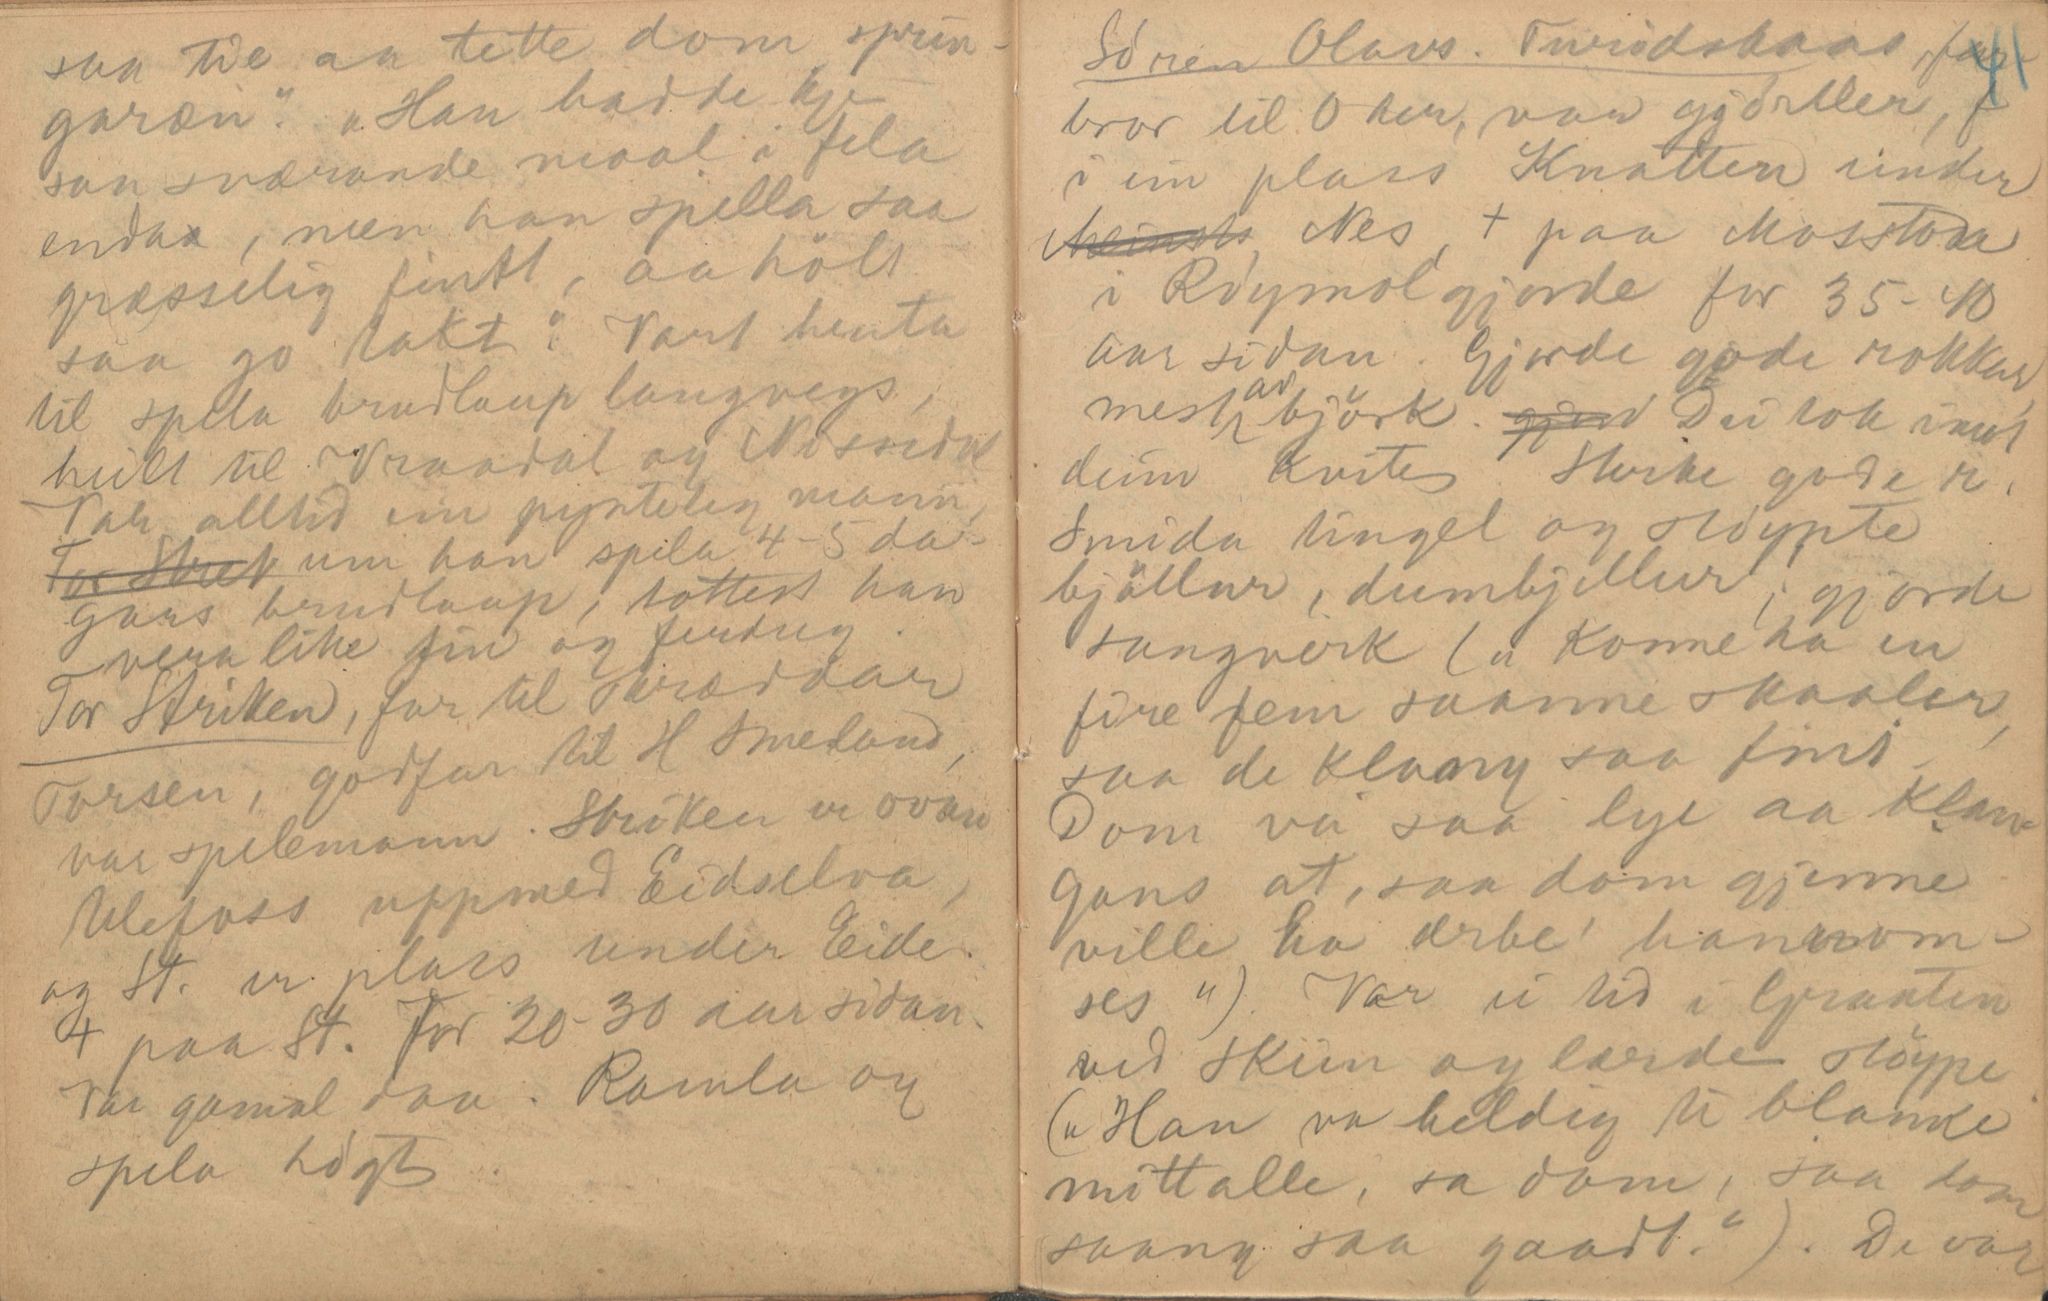 saa tie aa tette dom sprun-
garæn". "Han hadde kje
saa sværande maal i fela
endaa, men han spella saa
græsselig fint, aa hölt
saa go takt". Vart henta
til spela brudlaup langvegs,
heilt til Vraadal og Nissedal
Var alltid ein pynteleg mann,
um han spela 4-5 da-
gars brudlaup, tottest han
vera like fin og ferdug.
Tor Striken, far til skræddar
Torsen, godfar til H Smeland,
var spelemann. Striken er ovan
Ulefoss uppmed Eidselva,
og St. er plass under Eide.
+ paa St. for 20-30 aar sidan.
Var gamal daa. Ramla og
spela högt.
41
Sören Olavs. Turidskaas, far-
bror til O her, var gjörtler, f
i ein plass Knatten under
Nes, + paa Mosstoda
i Röymolgjorde for 35-40
aar sidan. Gjorde gode rokkar
mest av björk. Dei tok imot
deim kvites. Sterke gode r.
Smida tingel og stöypte
bjöllur, dumbjellur, gjorde
sangverk ("Konne ha en
fire fem saanne skaaler,
saa de klaang saa fint.
Dom va saa lye aa klan-
gans at, saa dom gjenne
ville ha ærbe' hanromses-
ses"). Var ei tid i Graaten
ved Skien og lærde stöype
("Han va heldig ti blanke
mittalle, sa dom, saa dom
saang saa gaadt."). De var